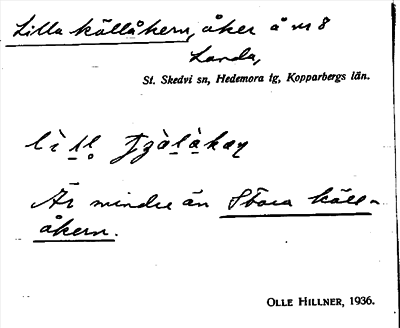 Lilla källåkern, åker å nr 8
Landa,
St. Skedvi sn, Hedemora tg, Kopparbergs län.
Är mindre än Stora käll-
åkern.
OLLE HILLNER, 1936.